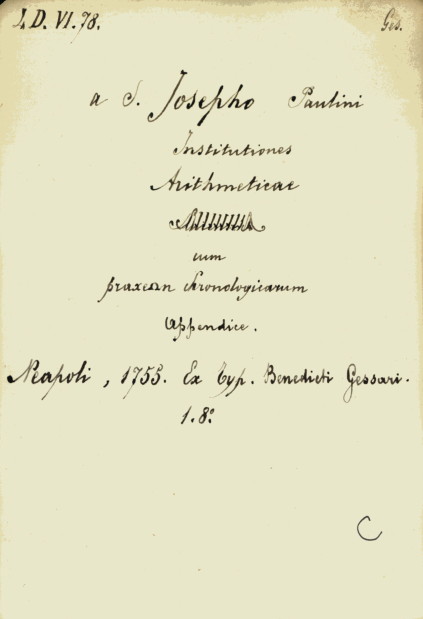 I, D. VI. 78.
Ges.
a S. Josepho Paulini
Institutiones
Arithmeticae
cum
praxeωn chronologicarum
appendice.
Neapoli, 1755. Ex Typ. Benedicti Gessari.
1. 8º
C